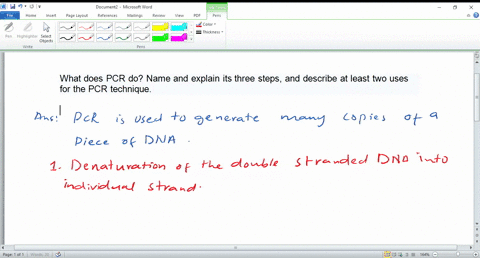 Document2 - Microsoft Word
File Home Insert Page Layout References Mailings Review View PDF Pens
Pen
Eraser
Select Objects
Color
Thickness
Write
Pens
What does PCR do? Name and explain its three steps, and describe at least two uses
for the PCR technique.
Ans: PCR is used to generate many copies of a
piece of DNA.
1. Denaturation of the double stranded DNA into
individual strand.
Page: 1 of 1